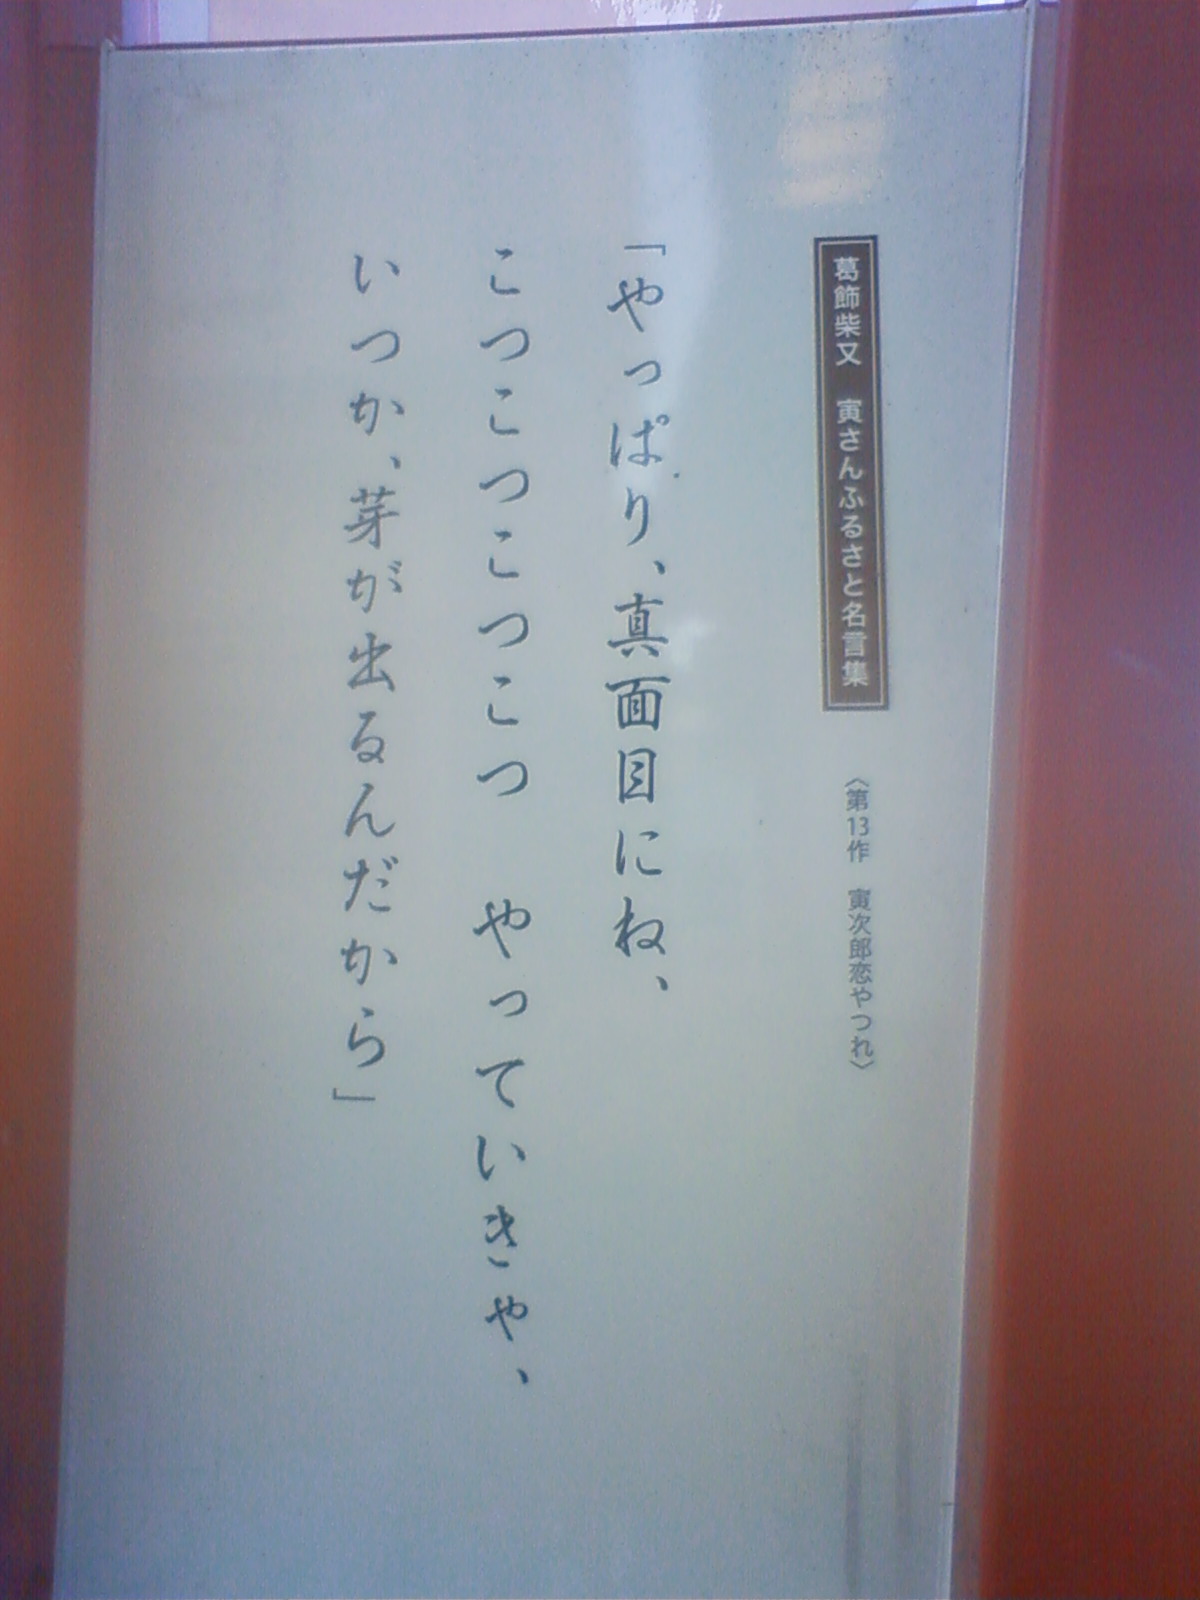 葛飾柴又　寅さんふるさと名言集
〈第13作　寅次郎恋やつれ〉
「やっぱり、真面目にね、
こつこつこつこつ　やっていきゃ、
いつか、芽が出るんだから」